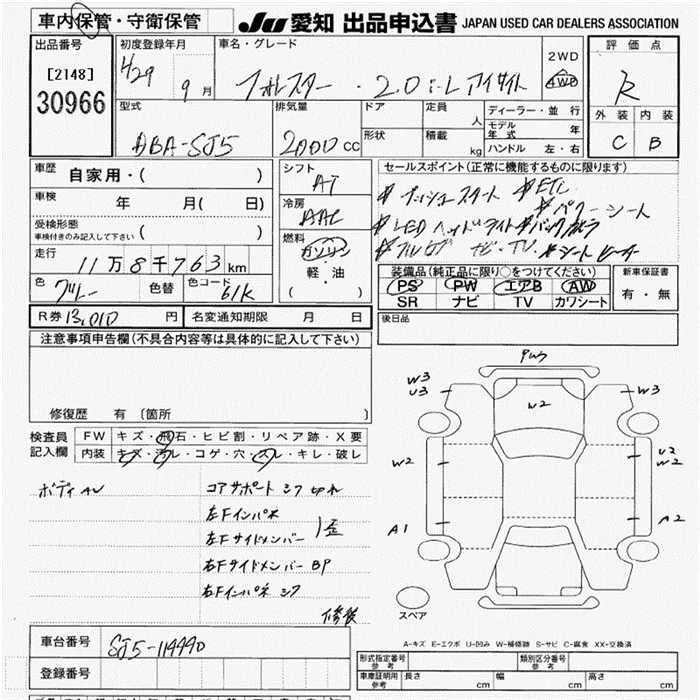 車内保管・守衛保管
JU 愛知 出品申込書 JAPAN USED CAR DEALERS ASSOCIATION
出品番号
[2148]
30966
初度登録年月
H29 9 月
車名・グレード
フォレスター 2.0 i-L アイサイト
2WD
4WD
評価点
R
外装 内装
C B
型式
DBA-SJ5
排気量
2000 cc
ドア
形状
定員
人
積載
kg
ディーラー・並行
モデル年式 年
ハンドル 左・右
車歴
自家用・( )
車検
年 月( 日)
受検形態
車検付きのみ記入して下さい ( )
走行
11万8千763 km
色 グレー 色替 色コード 61K
シフト
AT
冷房
AAC
燃料
ガソリン
軽・油
( )
セールスポイント(正常に機能するものに限ります)
# プッシュスタート # ETC
# パワーシート
# LEDヘッドライト # バックカメラ
# フルセグ ナビ・TV # シートヒーター
装備品(純正品に限り○をつけてください)
PS PW エアB AW
SR ナビ TV カワシート
新車保証書
有・無
R券 13,010 円 名変通知期限 月 日
後日品
注意事項申告欄(不具合内容等は具体的に記入して下さい)
修復歴 有 〔箇所 〕
検査員
記入欄
FW キズ・飛石・ヒビ割・リペア跡・X要
内装 キズ・汚レ・コゲ・穴・スレ・キレ・破レ
コアサポート シワ 切れ
左Fインパネ
左Fサイドメンバー
歪
右Fサイドメンバー BP
右Fインパネ シワ
修復
W3
U3
W2
W3
W2
U2
W2
A1
A2
スペア
A-キズ E-エクボ U-凹み W-補修跡 S-サビ C-腐食 XX-交換済
車台番号 SJ5-114440
登録番号
形式指定番号
参考
類別区分番号
参考
車庫証明用
参考
長さ cm 幅 cm 高さ cm